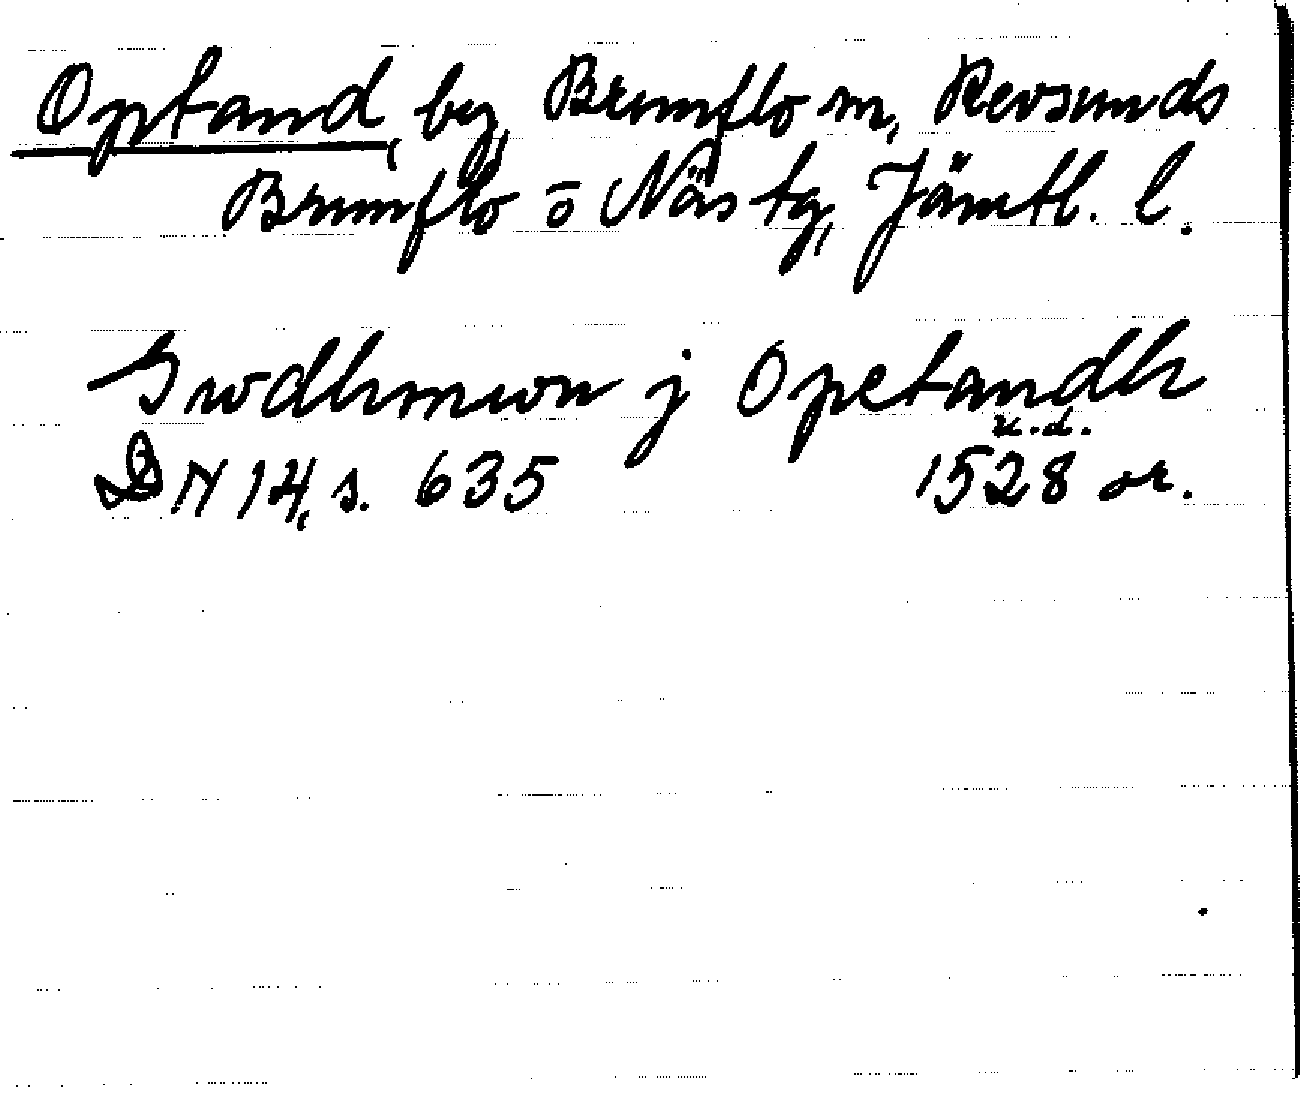 Optand, by, Brunflo sn, Revsunds
Brunflo o Näs tg, Jämtl. l.
Gudhmun j Opetandh
u.d.
DN 14, s. 635 1528 or.